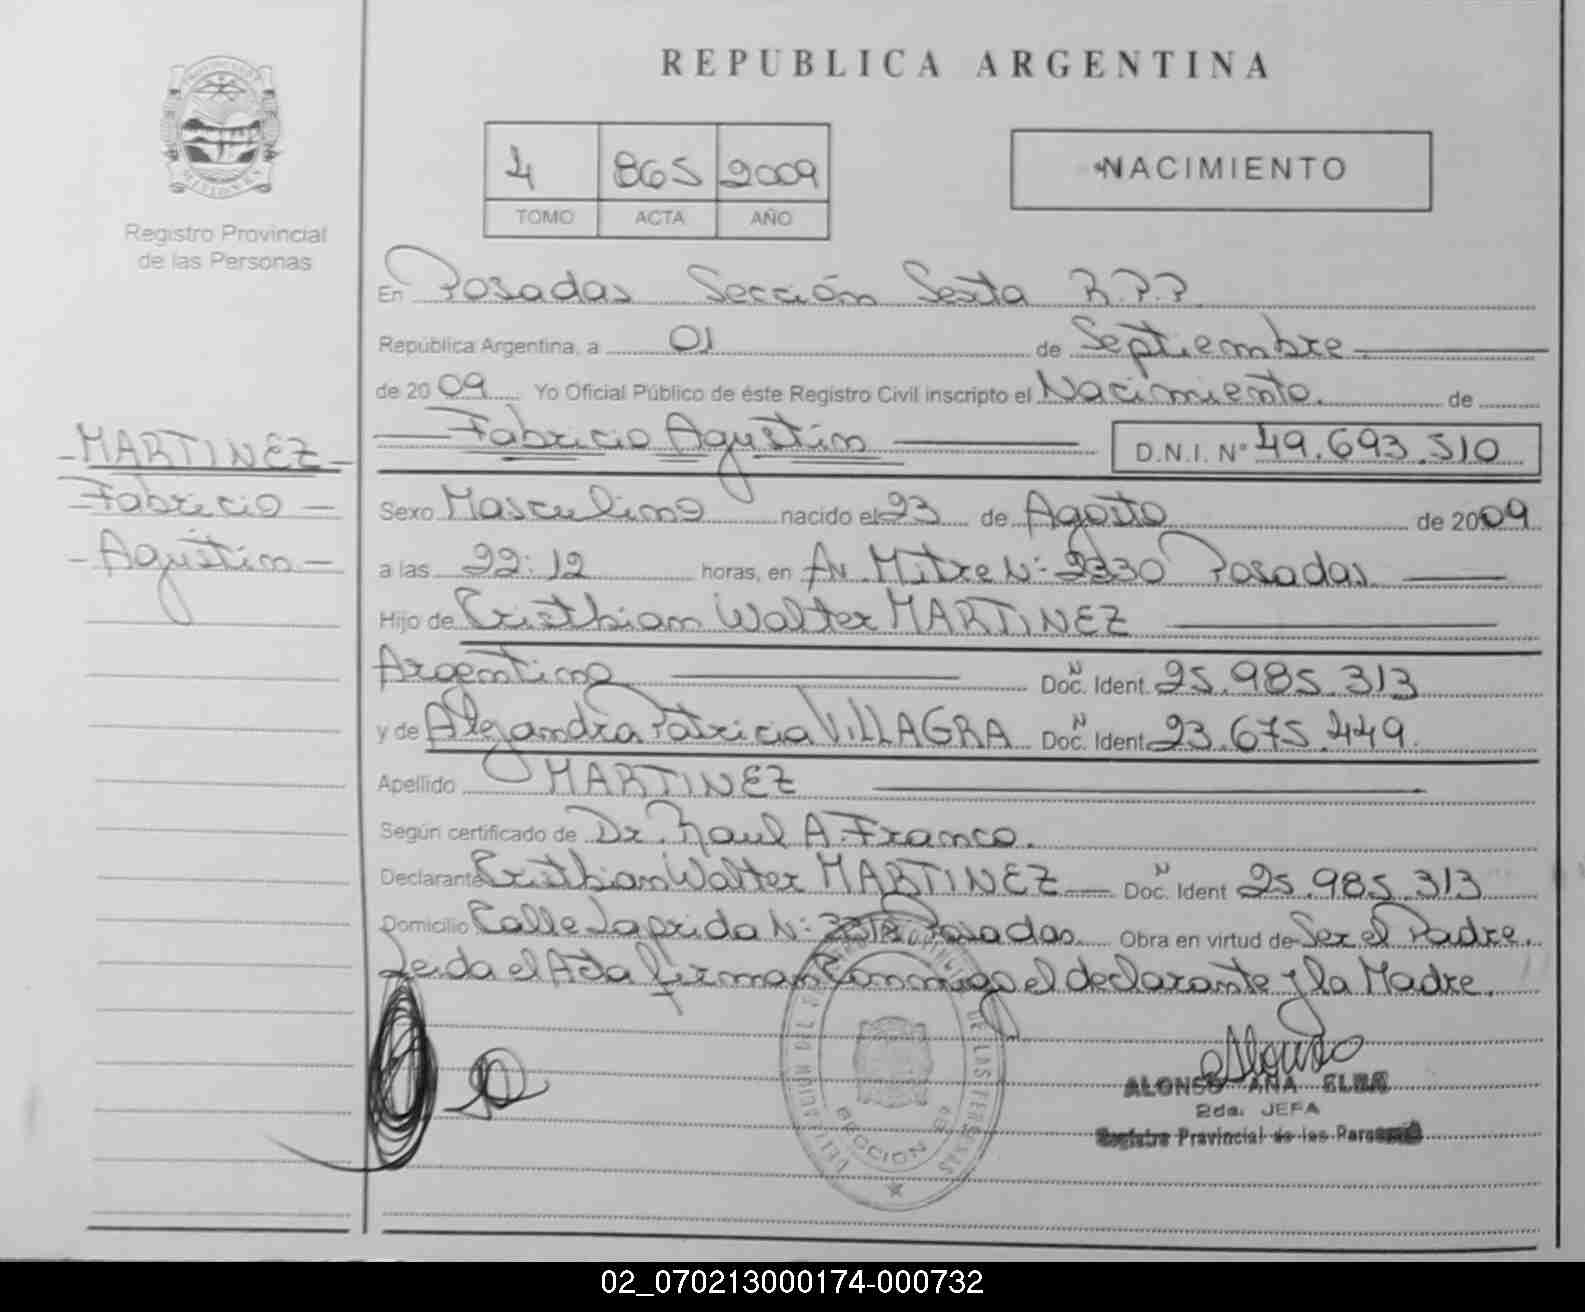 REPUBLICA ARGENTINA
4 865 2009
TOMO ACTA AÑO
NACIMIENTO
Registro Provincial
de las Personas
MISIONES
En Posadas Sección Sexta R.P.P.
República Argentina, a 01 de Septiembre
de 2009 Yo Oficial Público de éste Registro Civil inscripto el Nacimiento. de
Fabricio Agustín D.N.I. Nº 49.693.510
MARTINEZ
Fabricio
Agustín
Sexo Masculino nacido el 23 de Agosto de 2009
a las 22:12 horas, en Av. Mitre Nº 2330 Posadas
Hijo de Cristhian Walter MARTINEZ
Argentino Nº Doc. Ident. 25.985.313
y de Alejandra Patricia VILLAGRA Nº Doc. Ident. 23.675.449.
Apellido MARTINEZ
Según certificado de Dr. Raul A. Franco.
Declarante Cristhian Walter MARTINEZ Nº Doc. Ident 25.985.313
Domicilio Calle Laprida Nº Posadas. Obra en virtud de Ser el Padre.
Leida el Acta firman Conmigo el declarante y la Madre.
DE LAS PERSONAS
SECCION 6ª
ALONSO ANA ELBA
2da. JEFA
Registro Provincial de las Personas
02_070213000174-000732